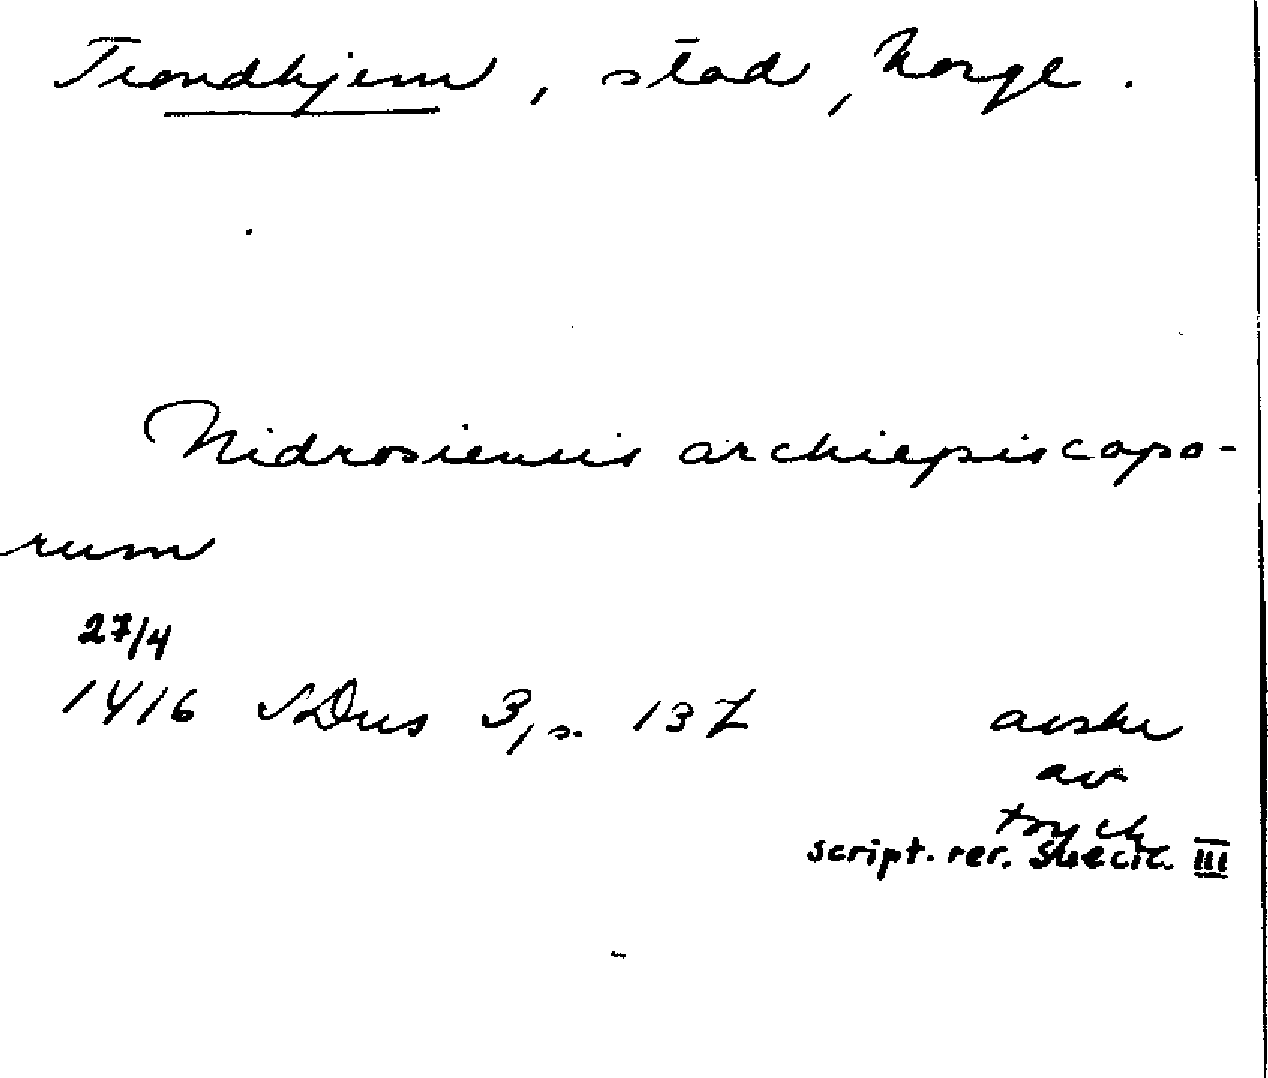 Trondhjem, stad, Norge.
Nidrosiensis archiepiscopo-
rum
27/4
1416 SDns 3, s. 137
avskr
av
tryck
script. rer. suecic. III